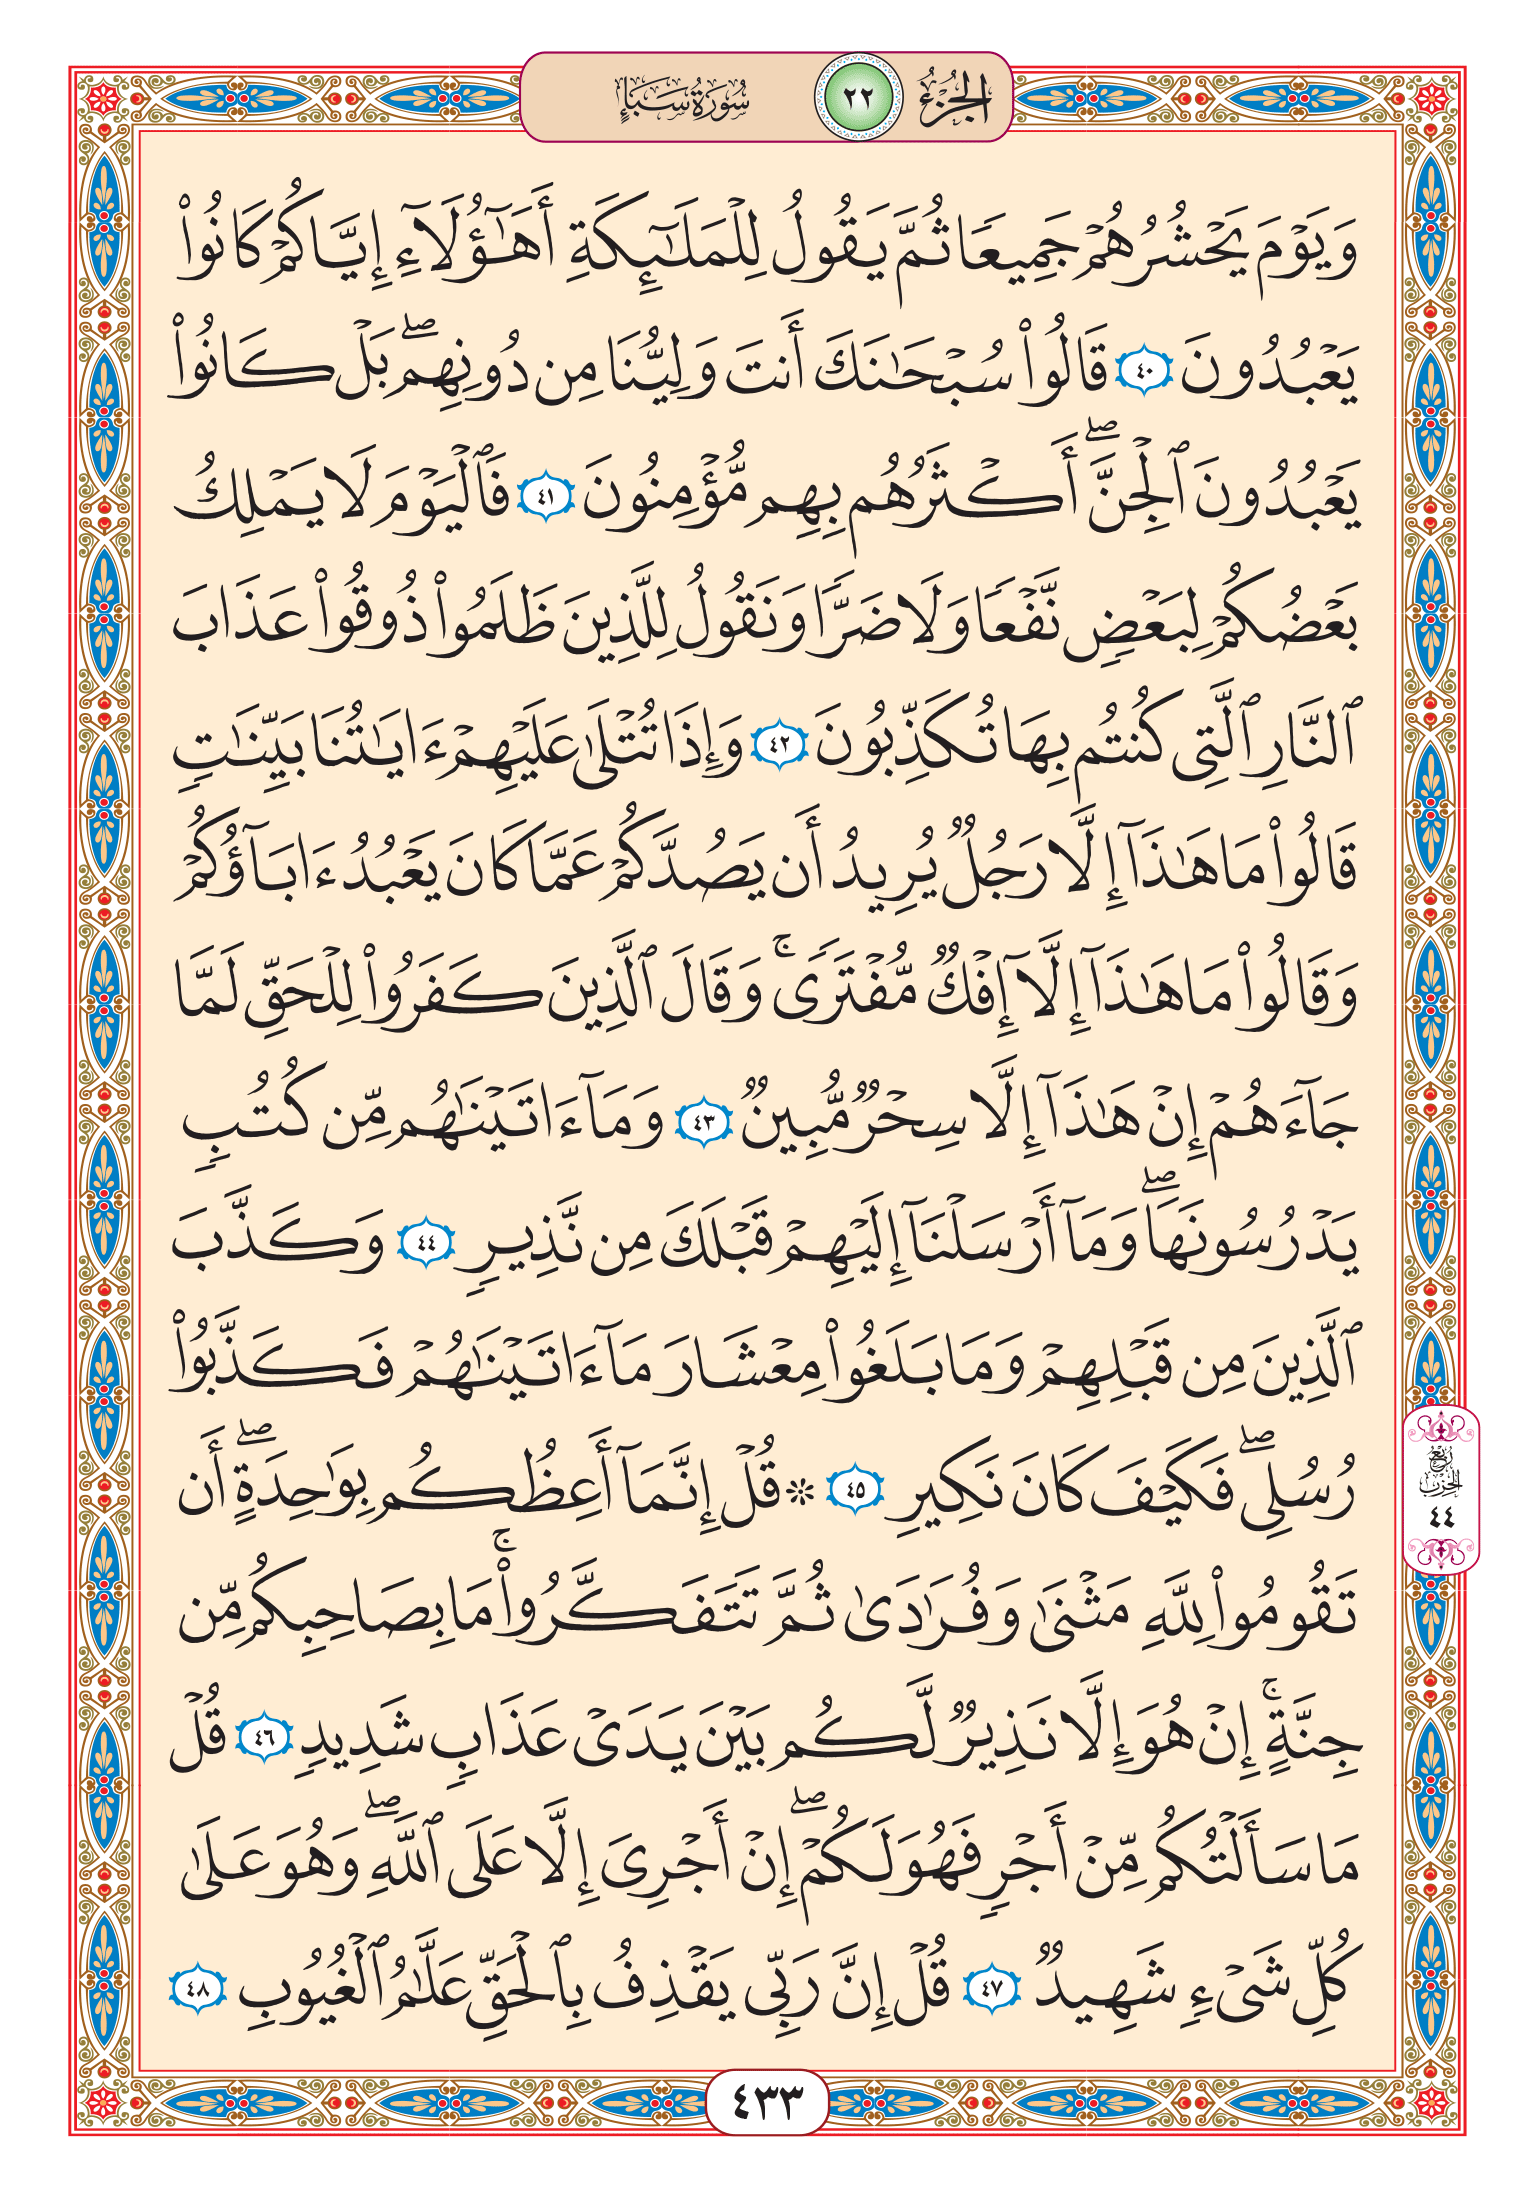 الجزء ٢٢ سورة سبإ
وَيَوْمَ يَحْشُرُهُمْ جَمِيعًا ثُمَّ يَقُولُ لِلْمَلَٰٓئِكَةِ أَهَٰٓؤُلَآءِ إِيَّاكُمْ كَانُوا۟
يَعْبُدُونَ ٤٠ قَالُوا۟ سُبْحَٰنَكَ أَنتَ وَلِيُّنَا مِن دُونِهِم ۖ بَلْ كَانُوا۟
يَعْبُدُونَ ٱلْجِنَّ ۖ أَكْثَرُهُم بِهِم مُّؤْمِنُونَ ٤١ فَٱلْيَوْمَ لَا يَمْلِكُ
بَعْضُكُمْ لِبَعْضٍ نَّفْعًا وَلَا ضَرًّا وَنَقُولُ لِلَّذِينَ ظَلَمُوا۟ ذُوقُوا۟ عَذَابَ
ٱلنَّارِ ٱلَّتِى كُنتُم بِهَا تُكَذِّبُونَ ٤٢ وَإِذَا تُتْلَىٰ عَلَيْهِمْ ءَايَٰتُنَا بَيِّنَٰتٍ
قَالُوا۟ مَا هَٰذَآ إِلَّا رَجُلٌ يُرِيدُ أَن يَصُدَّكُمْ عَمَّا كَانَ يَعْبُدُ ءَابَآؤُكُمْ
وَقَالُوا۟ مَا هَٰذَآ إِلَّآ إِفْكٌ مُّفْتَرًى ۚ وَقَالَ ٱلَّذِينَ كَفَرُوا۟ لِلْحَقِّ لَمَّا
جَآءَهُمْ إِنْ هَٰذَآ إِلَّا سِحْرٌ مُّبِينٌ ٤٣ وَمَآ ءَاتَيْنَٰهُم مِّن كُتُبٍ
يَدْرُسُونَهَا ۖ وَمَآ أَرْسَلْنَآ إِلَيْهِمْ قَبْلَكَ مِن نَّذِيرٍ ٤٤ وَكَذَّبَ
ٱلَّذِينَ مِن قَبْلِهِمْ وَمَا بَلَغُوا۟ مِعْشَارَ مَآ ءَاتَيْنَٰهُمْ فَكَذَّبُوا۟
رُسُلِى ۖ فَكَيْفَ كَانَ نَكِيرِ ٤٥ ۞ قُلْ إِنَّمَآ أَعِظُكُم بِوَٰحِدَةٍ ۖ أَن
تَقُومُوا۟ لِلَّهِ مَثْنَىٰ وَفُرَٰدَىٰ ثُمَّ تَتَفَكَّرُوا۟ ۚ مَا بِصَاحِبِكُم مِّن
جِنَّةٍ ۚ إِنْ هُوَ إِلَّا نَذِيرٌ لَّكُم بَيْنَ يَدَىْ عَذَابٍ شَدِيدٍ ٤٦ قُلْ
مَا سَأَلْتُكُم مِّنْ أَجْرٍ فَهُوَ لَكُمْ ۖ إِنْ أَجْرِىَ إِلَّا عَلَى ٱللَّهِ ۖ وَهُوَ عَلَىٰ
كُلِّ شَىْءٍ شَهِيدٌ ٤٧ قُلْ إِنَّ رَبِّى يَقْذِفُ بِٱلْحَقِّ عَلَّٰمُ ٱلْغُيُوبِ ٤٨
ربع
الحزب
٤٤
٤٣٣